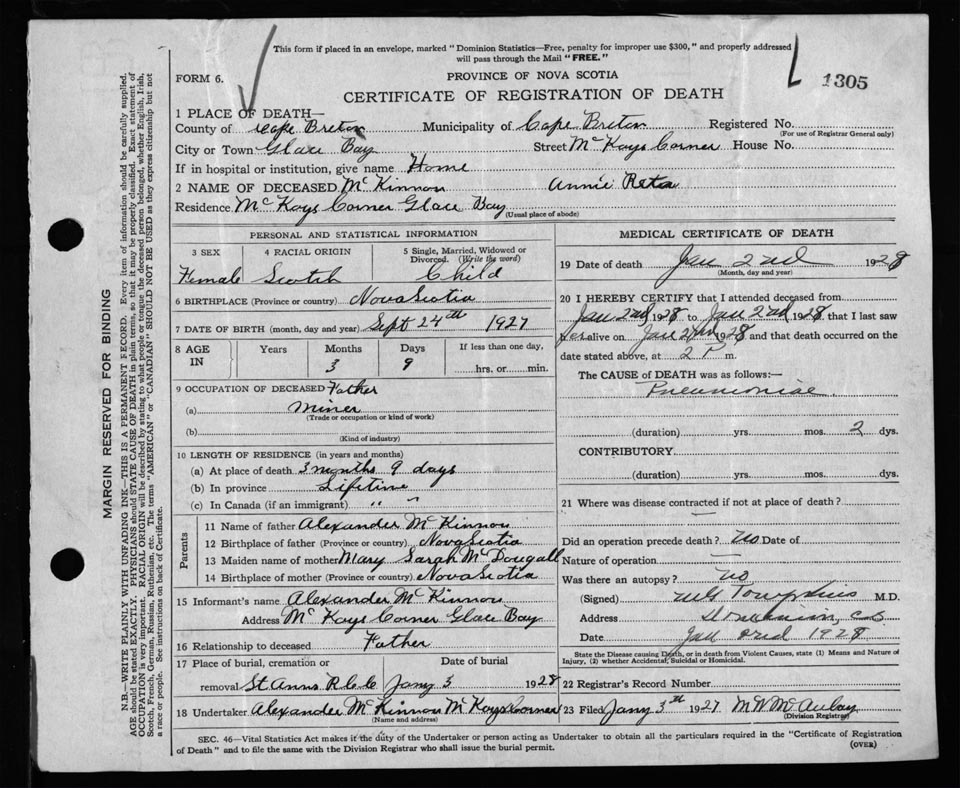 This form if placed in an envelope, marked "Dominion Statistics—Free, penalty for improper use $300," and properly addressed
will pass through the Mail "FREE."
FORM 6.
PROVINCE OF NOVA SCOTIA
1305
CERTIFICATE OF REGISTRATION OF DEATH
1 PLACE OF DEATH—
County of Cape Breton Municipality of Cape Breton Registered No.
(For use of Registrar General only)
City or Town Glace Bay Street McKays Corner House No.
If in hospital or institution, give name Home
2 NAME OF DECEASED McKinnon Annie Reta
Residence McKays Corner Glace Bay
(Usual place of abode)
PERSONAL AND STATISTICAL INFORMATION
3 SEX 4 RACIAL ORIGIN 5 Single, Married, Widowed or
Divorced. (Write the word)
Female Scotch Child
6 BIRTHPLACE (Province or country) Nova Scotia
7 DATE OF BIRTH (month, day and year) Sept 24th 1927
8 AGE Years Months Days If less than one day,
IN 3 9 hrs. or min.
9 OCCUPATION OF DECEASED Father
(a) miner
(Trade or occupation or kind of work)
(b)
(Kind of industry)
10 LENGTH OF RESIDENCE (in years and months)
(a) At place of death 3 months 9 days
(b) In province Lifetime
(c) In Canada (if an immigrant) "
Parents
11 Name of father Alexander McKinnon
12 Birthplace of father (Province or country) Nova Scotia
13 Maiden name of mother Mary Sarah McDougall
14 Birthplace of mother (Province or country) Nova Scotia
15 Informant's name Alexander McKinnon
Address McKays Corner Glace Bay
16 Relationship to deceased Father
17 Place of burial, cremation or Date of burial
removal St Anns R C C Jany 3 1928
18 Undertaker Alexander McKinnon McKays Corner
(Name and address)
MEDICAL CERTIFICATE OF DEATH
19 Date of death Jan 2nd 1928
(Month, day and year)
20 I HEREBY CERTIFY that I attended deceased from
Jan 2nd 1928 to Jan 2nd 1928 that I last saw
her alive on Jan 2nd 1928 and that death occurred on the
date stated above, at 2 P m.
The CAUSE of DEATH was as follows:—
Pneumoniae
(duration) yrs. mos. 2 dys.
CONTRIBUTORY
(duration) yrs. mos. dys.
21 Where was disease contracted if not at place of death?
—
Did an operation precede death? no Date of
Nature of operation —
Was there an autopsy? no
(Signed) Tompkins M.D.
Address Dominion, C B
Date Jan 1928
State the Disease causing Death, or in death from Violent Causes, state (1) Means and Nature of
Injury, (2) whether Accidental, Suicidal or Homicidal.
22 Registrar's Record Number
23 Filed Jany 3th 1927 M W McAulay
(Division Registrar)
SEC. 46—Vital Statistics Act makes it the duty of the Undertaker or person acting as Undertaker to obtain all the particulars required in the "Certificate of Registration
of Death" and to file the same with the Division Registrar who shall issue the burial permit.
(OVER)
MARGIN RESERVED FOR BINDING
N.B.—WRITE PLAINLY WITH UNFADING INK—THIS IS A PERMANENT RECORD. Every item of information should be carefully supplied.
AGE should be stated EXACTLY. PHYSICIANS should STATE CAUSE OF DEATH in plain terms, so that it may be properly classified. Exact statement of
OCCUPATION is very important. RACIAL ORIGIN will be described by stating to what people or tongue the deceased person belonged, whether English, Irish,
Scotch, French, German, Russian, Ruthenian, etc. The terms "AMERICAN" or "CANADIAN" SHOULD NOT BE USED as they express citizenship but not
a race or people. See instructions on back of Certificate.